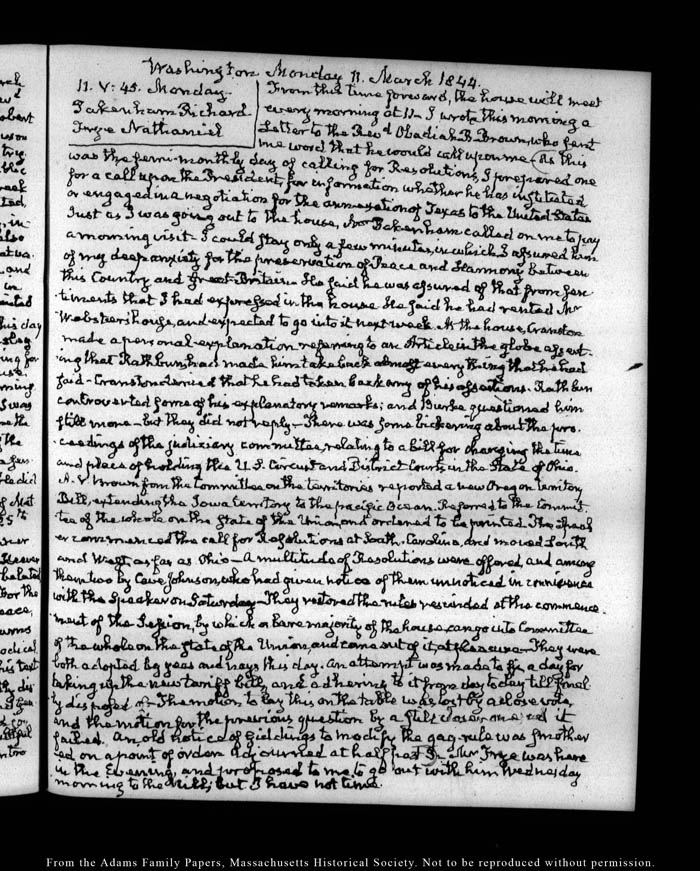 Washington Monday 11. March 1844.
11. V: 45. Monday.
Pakenham Richard
Frye Nathaniel
From this time forward, the house will meet
every morning at 11 - I wrote this morning a
Letter to the Revd Obadiah B. Brown, who sent
me word that he would call upon me (As this
was the semi-monthly day of calling for Resolutions, I prepared one
for a call upon the President, for information whether he has instituted
or engaged in a negotiation for the annexation of Texas to the United States
Just as I was going out to the house, Mr Pakenham called on me to pay
a morning visit - I could stay only a few minutes, in which I assured him
of my deep anxiety for the preservation of Peace and Harmony between
this Country and Great-Britain - He said he was assured of that from sen-
timents that I had expressed in the house He said he had rented Mr
Webster's house, and expected to go into it next week. At the house, Cranston
made a personal explanation referring to an Article in the globe assert-
ing that Rathbun had made him take back almost every thing that he had
said - Cranston denied that he had taken back any of his assertions. Rathbun
controverted some of his explanatory remarks; and Burke questioned him
still more - but they did not reply - There was some bickering about the pro-
ceedings of the judiciary committee, relating to a bill for changing the time
and place of holding the U.S. Circuit and District Courts, in the State of Ohio.
A. V. Brown from the Committee on the territories reported a new Oregon territory
Bill, extending the Iowa territory to the pacific Ocean. Referred to the Commit-
tee of the whole on the State of the Union, and ordered to be printed. The Speak
er commenced the call for Resolutions at South-Carolina, and moved South
and West, as far as Ohio - A multitude of Resolutions were offered, and among
them two by Cave Johnson, who had given notice of them unnoticed in connivance
with the Speaker on Saturday - They restored the rules rescinded at the commence-
ment of the Session, by which a bare majority of the house can go into Committee
of the whole on the State of the Union, and come out of it, at pleasure - They were
both adopted by yeas and nays this day. An attempt was made to fix a day for
taking up the new tariff bill, and adhering to it from day to day till final
ly disposed of - The motion to lay this on the table was lost by a close vote,
and the motion for the previous question by a still closer one and it
failed. An old notice of Giddings to modify the gag-rule was smother
ed on a point of order. Adjourned at half past 3. Mr Frye was here
in the Evening, and proposed to me to go out with him Wednesday
morning to the Mill; but I have not time.
From the Adams Family Papers, Massachusetts Historical Society. Not to be reproduced without permission.